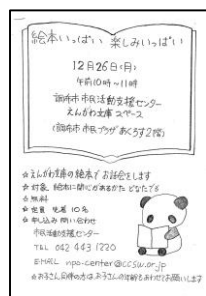 絵本いっぱい 楽しみいっぱい
12月26日(月)
午前10時〜11時
調布市市民活動支援センター
えんがわ文庫 スペース
(調布市市民プラザあくろす2階)
☆えんがわ文庫の絵本で お話会をします
☆対象 絵本に関心があるかた どなたでも
☆無料
☆定員 先着10名
☆申し込み 問い合わせ
市民活動支援センター
TEL 042 443 1220
EMAIL npo-center@ccsw.or.jp
☆お子さん同伴の方は、お子さんの年齢もあわせてお願いします